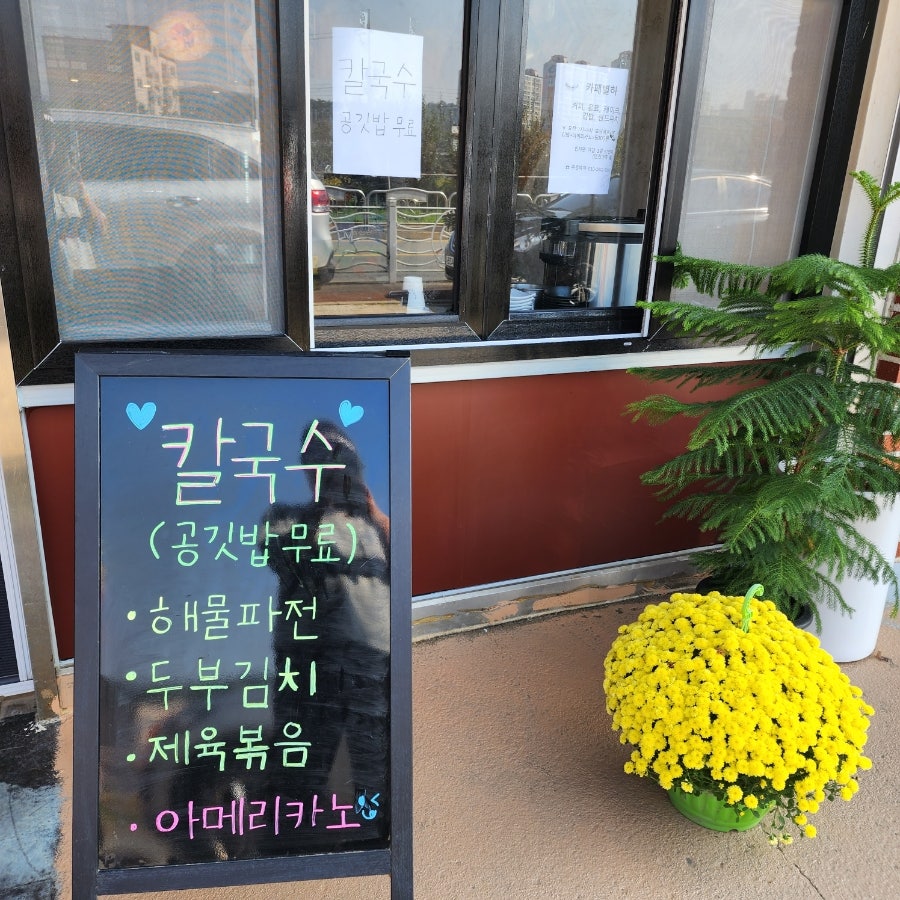 칼국수
공깃밥 무료
카페별하
칼국수
(공깃밥 무료)
• 해물파전
• 두부김치
• 제육볶음
• 아메리카노